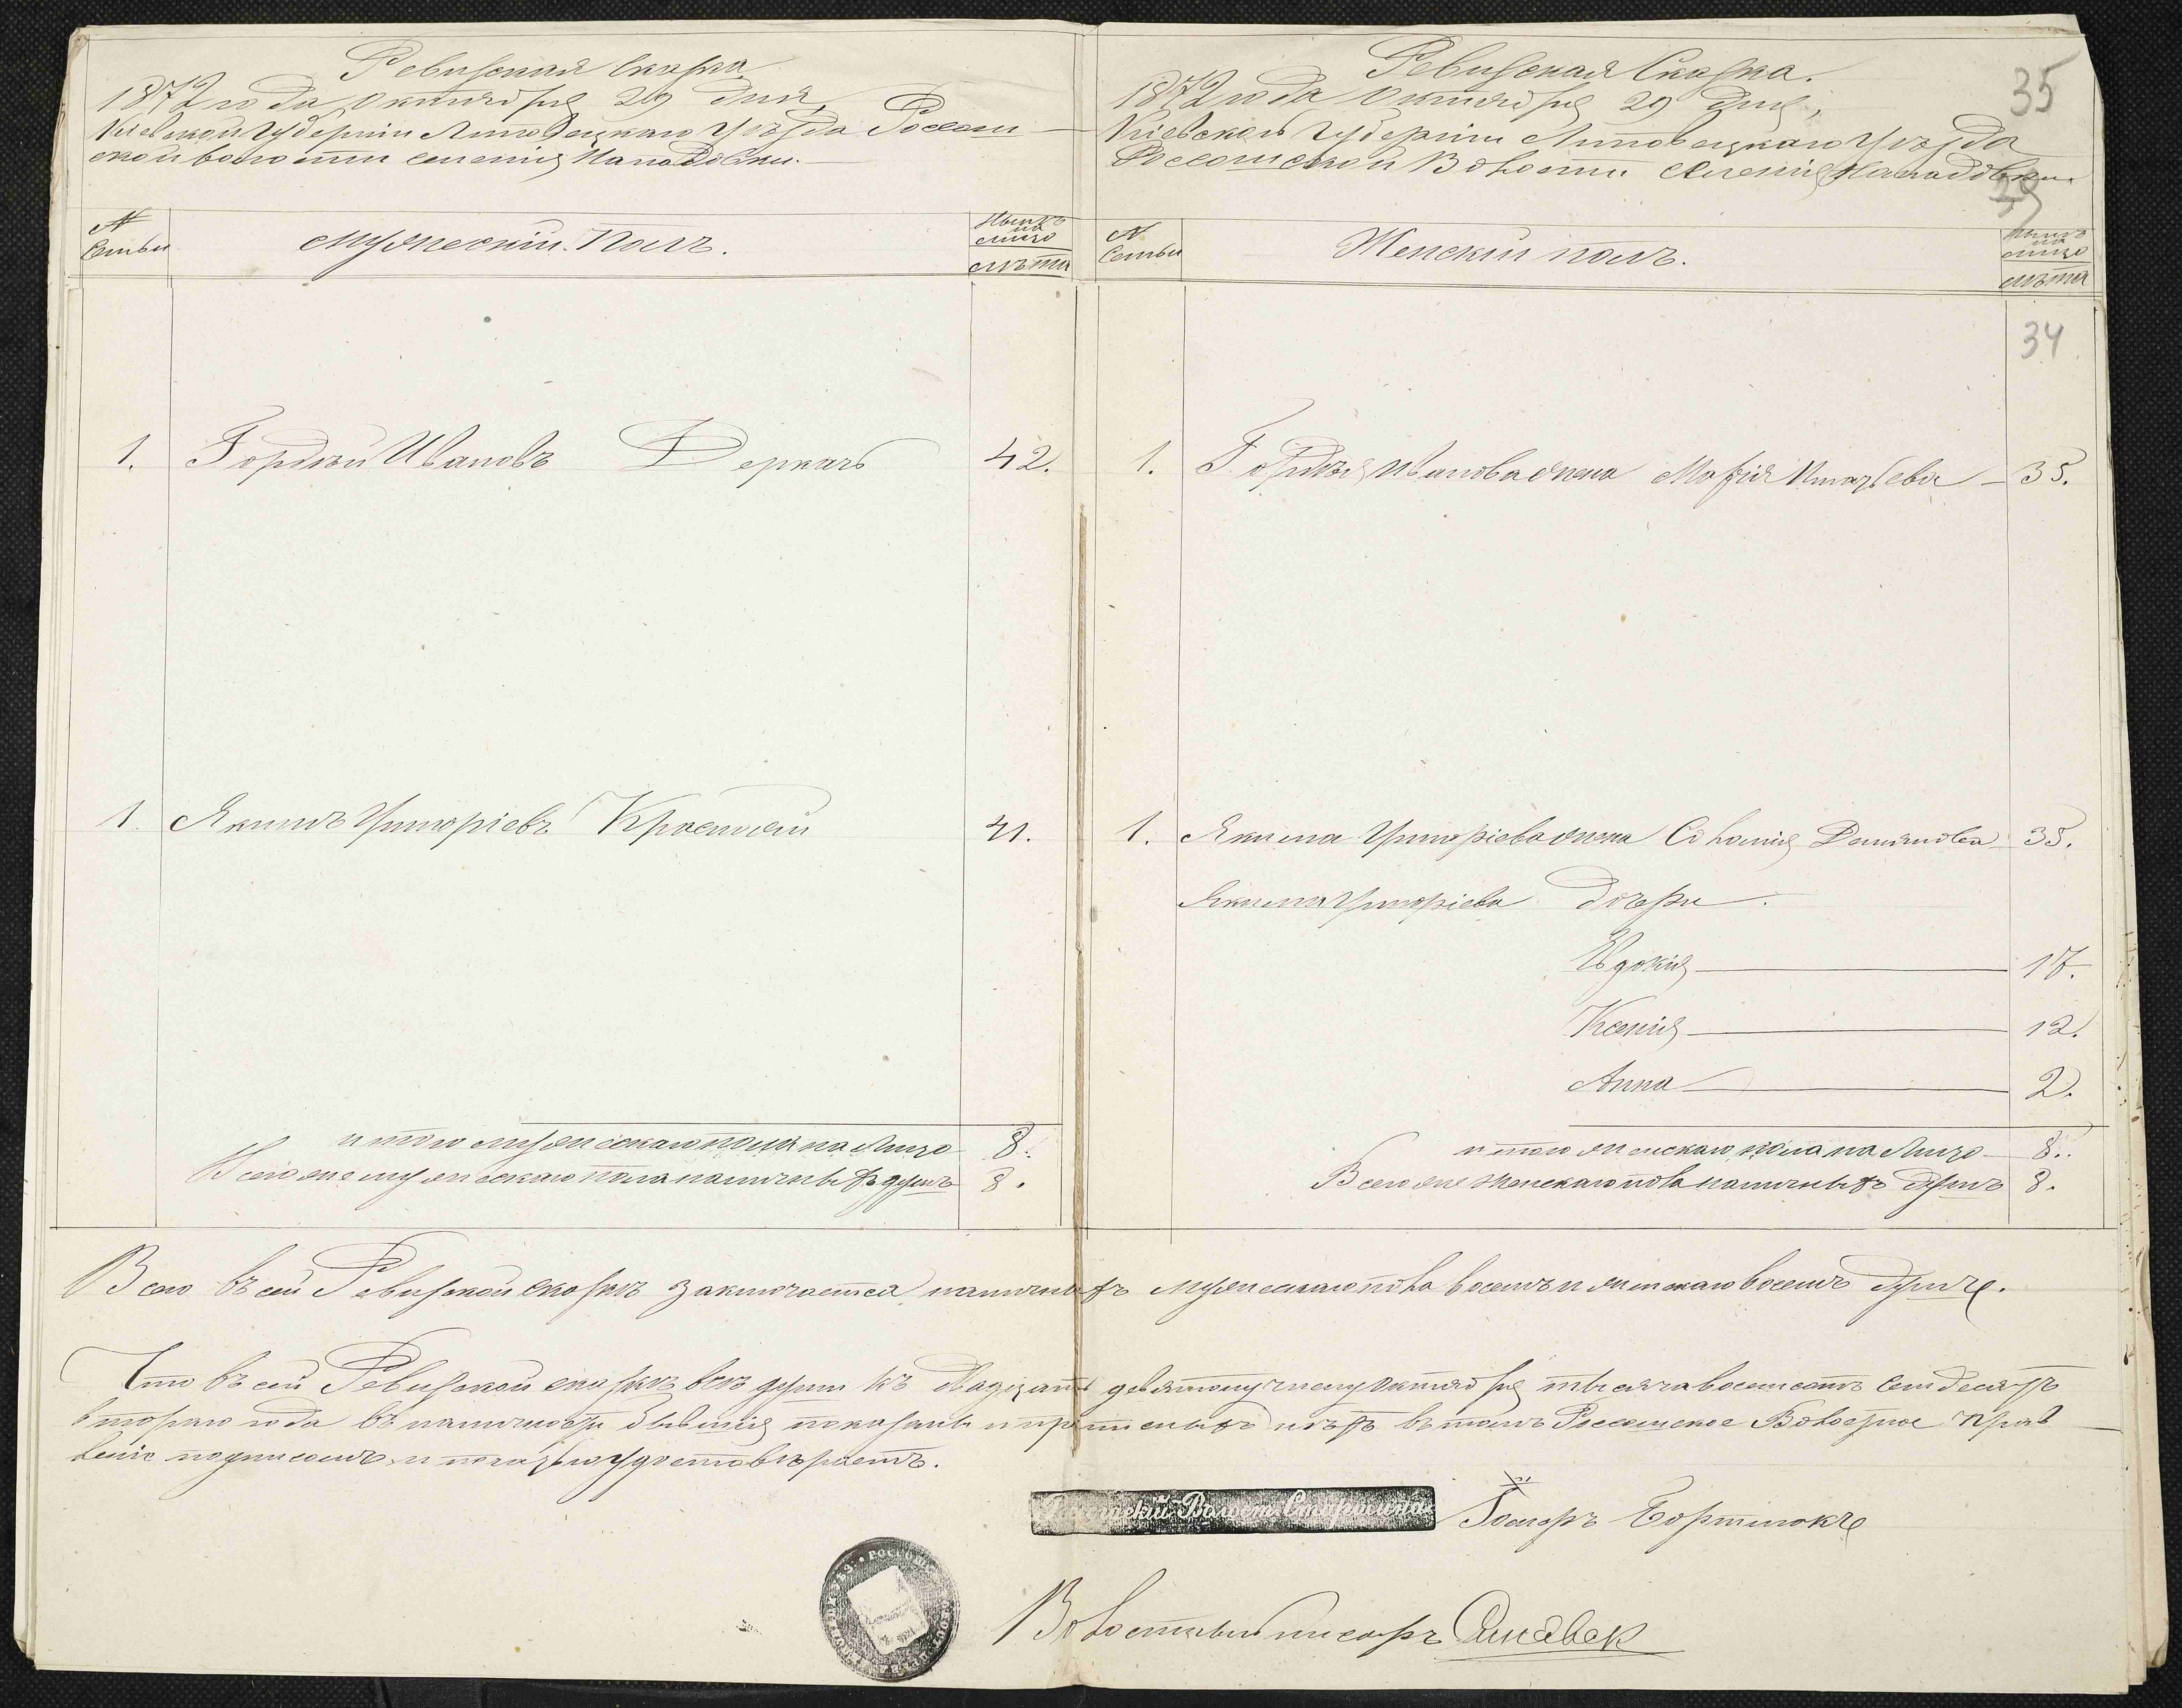 Ревизская Сказка
1872 года Октября 29 дня,
Киевской губернии Липовецкаго Уѣзда Россош-
ской волости селенія Нападовки.
№ Семьи
Мужескій Полъ.
Нынѣ на лицо
лѣта
1. Гордѣй Ивановъ Деркачъ 42.
1. Якимъ Григоріевъ 41.
итого мужескаго пола на Лицо 8.
Всего же мужескаго пола наличныхъ душъ 8.
Ревизская Сказка.
35
1872 года Октября 29 дня,
Кіевской губерніи Липовецкаго Уѣзда
Россошской Волости Селенія Нападовки
№ Семьи
Женскій полъ.
Нынѣ на лицо
лѣта
34
1. Гордѣя Иванова жена Марія Игнатьева 35.
1. Якима Григоріева жена Соломія Демянова 35.
Якима Григоріева дочери.
Евдокія 17.
Ксенія 12.
Анна 2.
итого женскаго пола на Лицо 8.
Всего же женскаго пола наличныхъ душъ 8.
Всего въ сей Ревизской сказкѣ заключается наличныхъ мужескаго пола восемь и женскаго восемь душъ.
Что въ сей Ревизской сказкѣ всѣ души къ двадцать девятому числу Октября тысяча восемсотъ семдесятъ
втораго года въ наличности бывшія показаны и нѣтъ въ томъ Россошское Волосное Прав-
леніе подписомъ и печатью удостовѣряетъ.
Россошскій Волост. Старшина
Волостный писарь